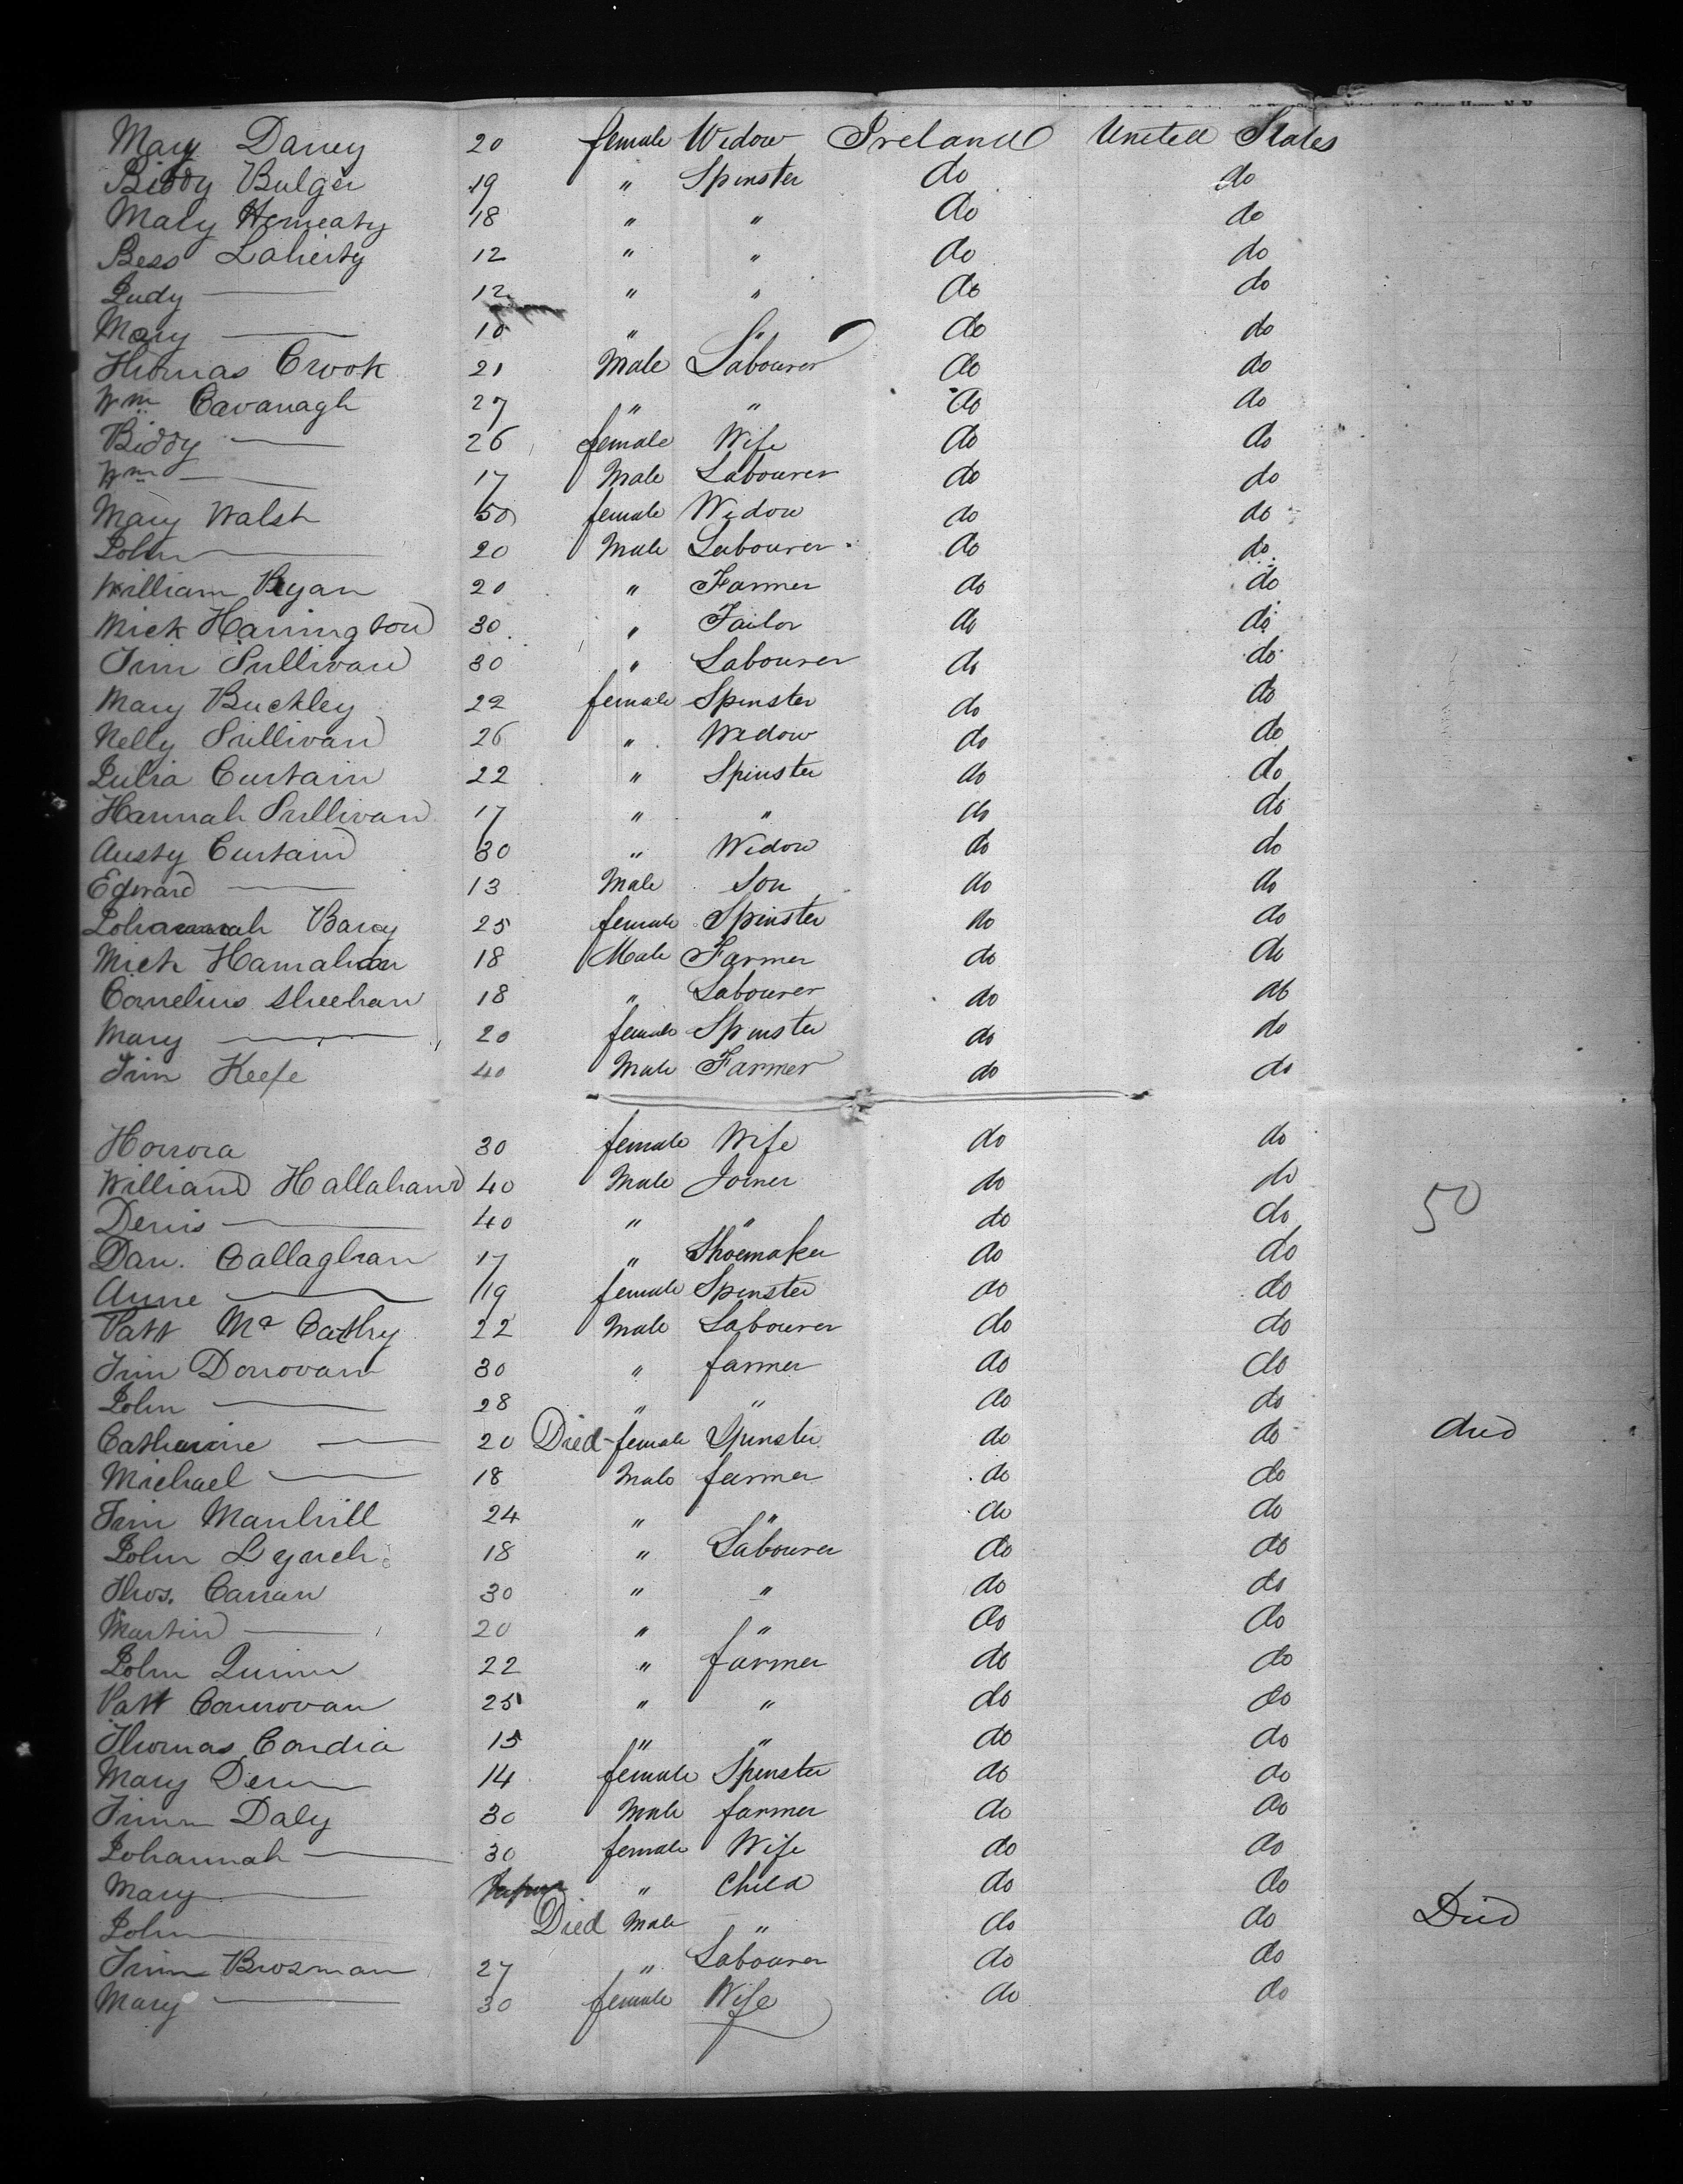 Mary Darcy 20 female Widow Ireland United States
Biddy Bulger 19 " Spinster do do
Mary 18 " " do do
Bess Laherty 12 " " do do
Judy — 12 " " do do
Mary — 10 " " do do
Thomas Crook 21 Male Labourer do do
Wm Cavanagh 27 " " do do
Biddy — 26 female Wife do do
Wm — 17 Male Labourer do do
Mary Walsh 50 female Widow do do
John — 20 Male Labourer do do
William Ryan 20 " Farmer do do
Mick Harrington 30 " Tailor do do
Tim Sullivan 30 " Labourer do do
Mary Buckley 22 female Spinster do do
Nelly Sullivan 26 " Widow do do
Julia Curtain 22 " Spinster do do
Hannah Sullivan 17 " " do do
Austy Curtain 30 " Widow do do
Edward — 13 Male Son do do
Johannah Barry 25 female Spinster do do
Mich Hanrahan 18 Male Farmer do do
Cornelius Sheehan 18 " Labourer do do
Mary — 20 female Spinster do do
Tim Keefe 40 Male Farmer do do
Honora 30 female Wife do do
William Hallahan 40 Male Joiner do do
Denis — 40 " " do do 50
Dan. Callaghan 17 " Shoemaker do do
Anne — 19 female Spinster do do
Patt Mc Cathy 22 Male Labourer do do
Tim Donovan 30 " farmer do do
John — 28 " " do do
Catharine — 20 Died female Spinster do do died
Michael — 18 Male farmer do do
Tim Manhill 24 " " do do
John Lynch 18 " Labourer do do
Thos. Carran 30 " " do do
Martin — 20 " " do do
John Quinn 22 " farmer do do
Patt Connovan 25 " " do do
Thomas Condia 15 " " do do
Mary 14 female Spinster do do
Timn Daly 30 Male farmer do do
Johannah — 30 female Wife do do
Mary — " Child do do
John — Died Male " do do Died
Timn Brosman 27 " Labourer do do
Mary — 30 female Wife do do